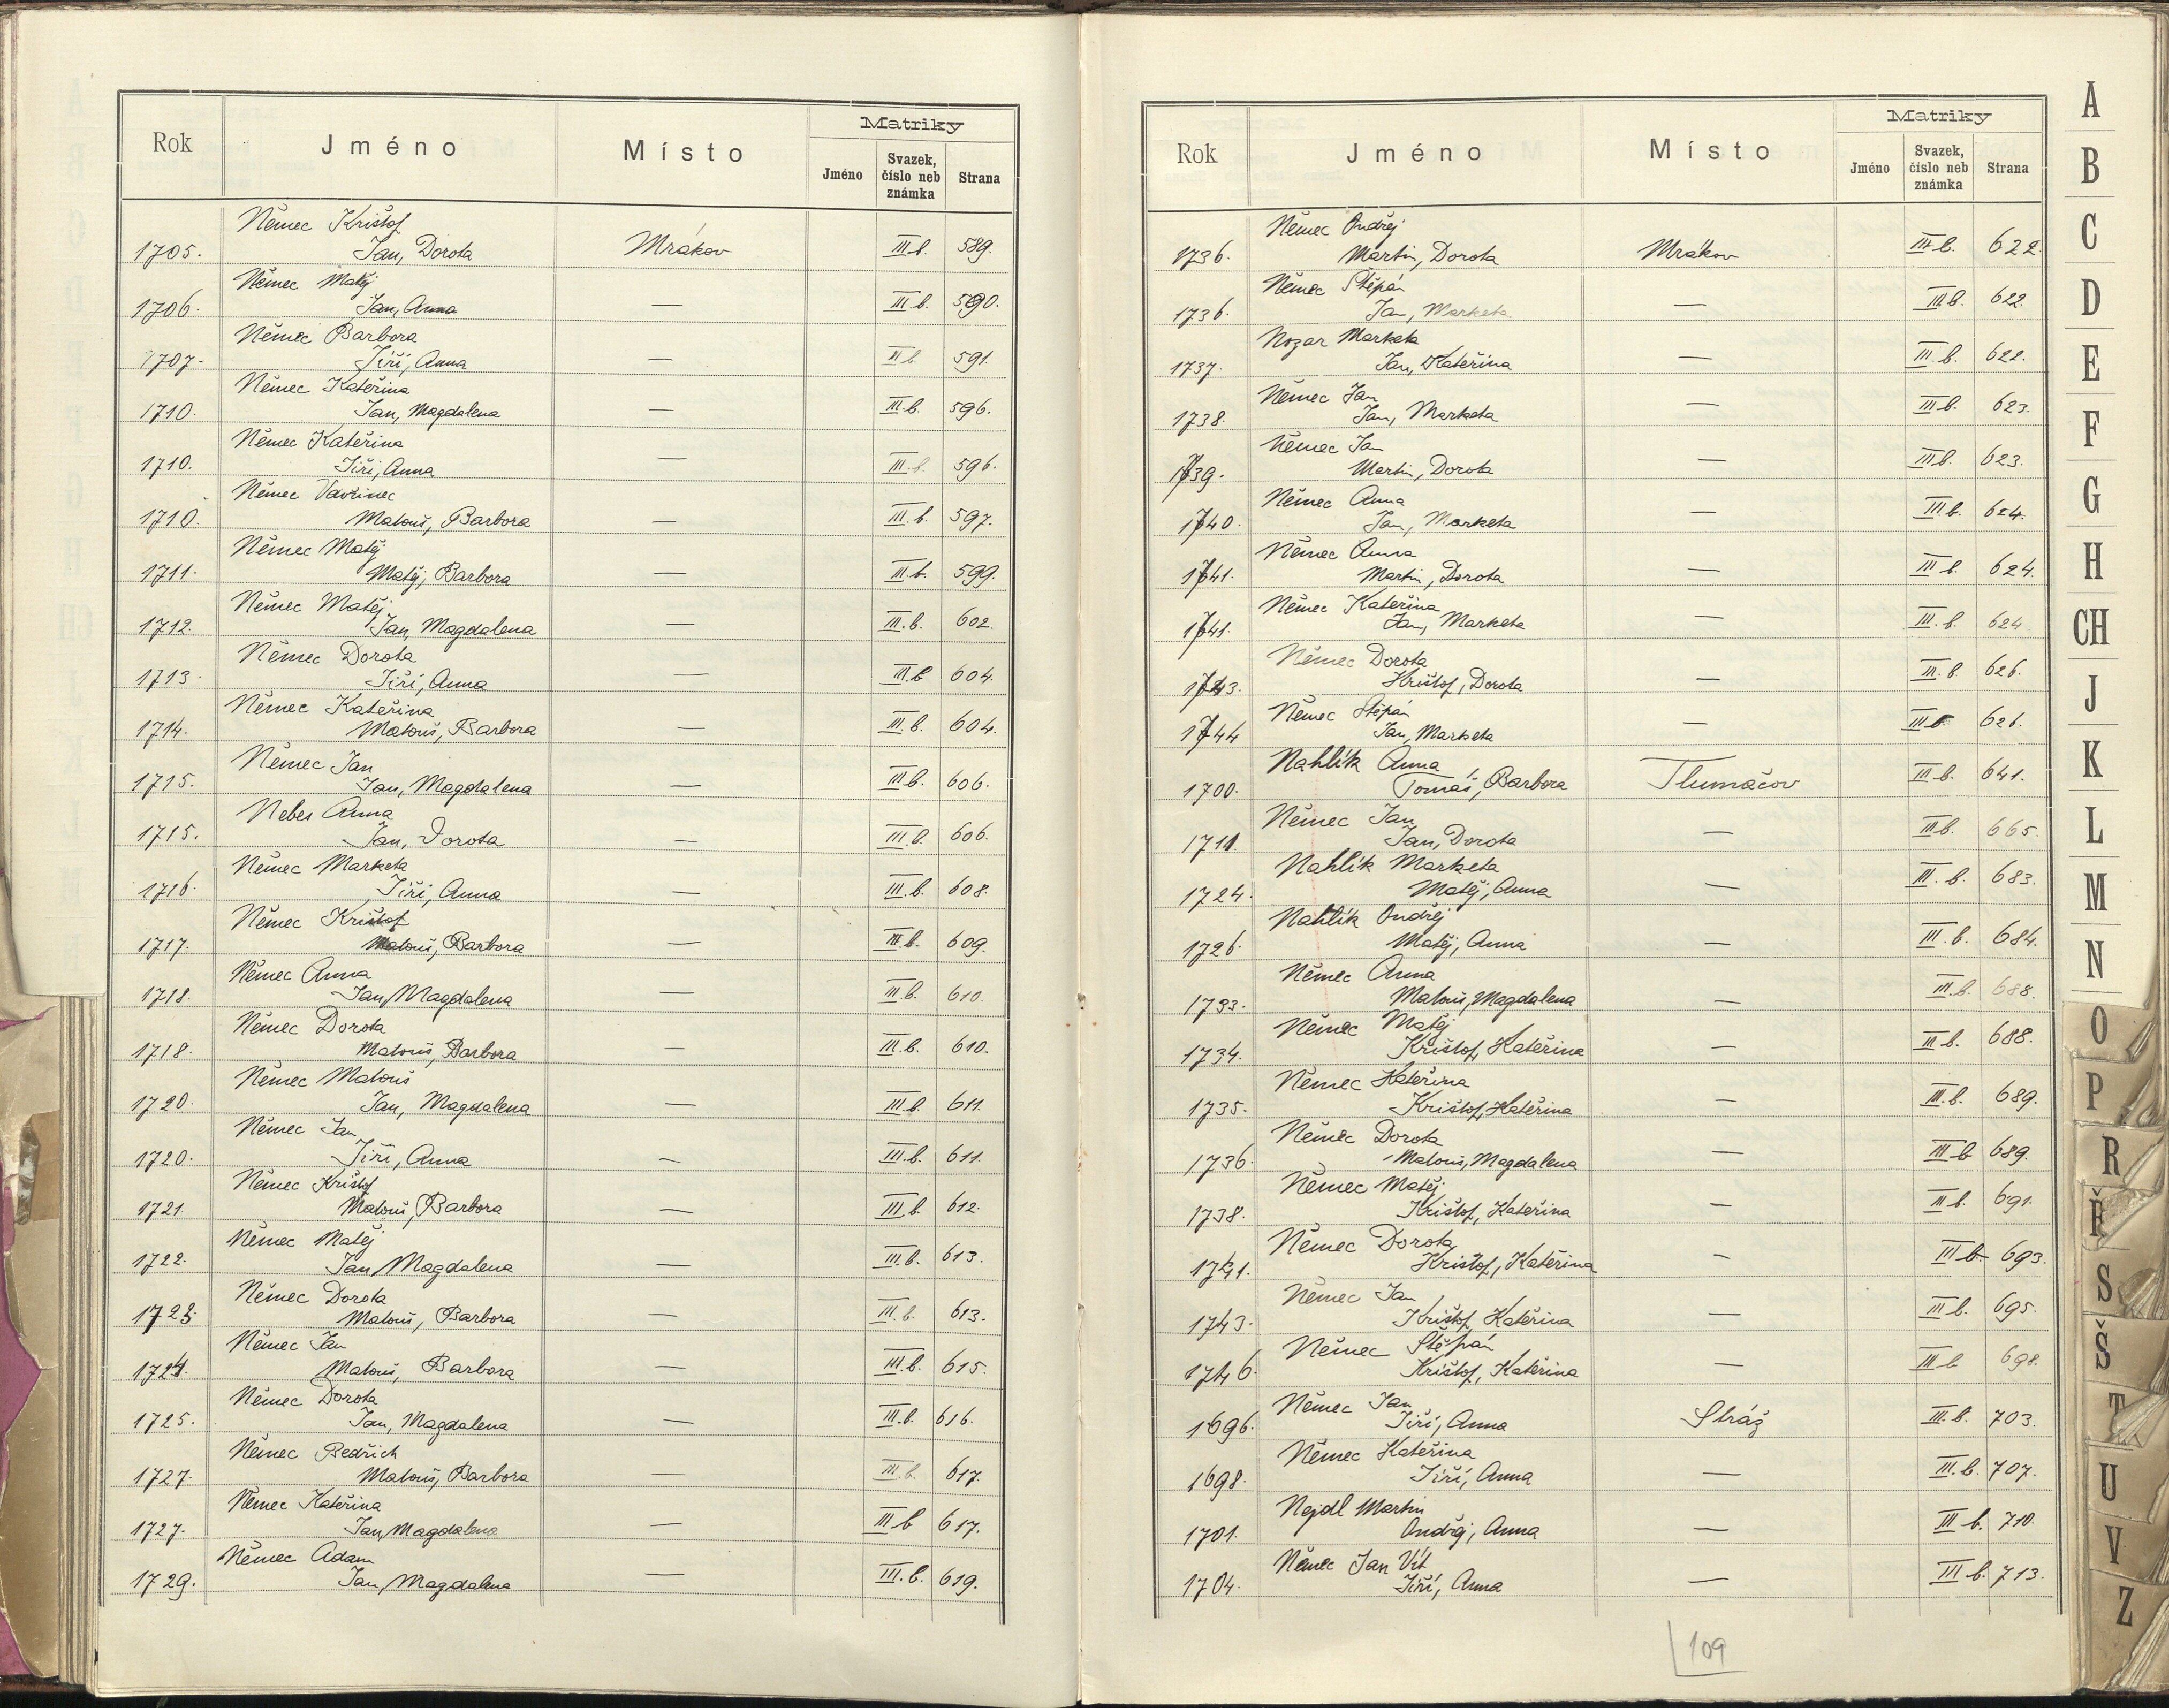 Rok Jméno Místo Matriky
Jméno Svazek, číslo neb známka Strana
Němec Krištof
1705. Jan, Dorota Mrákov III.b. 589.
Němec Matěj
1706. Jan, Anna — III.b. 590.
Němec Barbora
1707. Jiří, Anna — III b. 591.
Němec Kateřina
1710. Jan, Magdalena — III.b. 596.
Němec Kateřina
1710. Jiří, Anna — III.b. 596.
Němec Vavřinec
1710. Matouš, Barbora — III.b. 597.
Němec Matěj
1711. Matěj, Barbora — III.b. 599.
Němec Matěj
1712. Jan, Magdalena — III.b. 602.
Němec Dorota
1713. Jiří, Anna — III.b 604.
Němec Kateřina
1714. Matouš, Barbora — III.b. 604.
Němec Jan
1715. Jan, Magdalena — III b. 606.
Nebes Anna
1715. Jan, Dorota — III.b. 606.
Němec Marketa
1716. Jiří, Anna — III.b. 608.
Němec Krištof
1717. Matouš, Barbora — III.b. 609.
Němec Anna
1718. Jan, Magdalena — III.b. 610.
Němec Dorota
1718. Matouš, Barbora — III.b. 610.
Němec Matouš
1720. Jan, Magdalena — III.b. 611.
Němec Jan
1720. Jiří, Anna — III.b. 611.
Němec Krištof
1721. Matouš, Barbora — III b. 612.
Němec Matěj
1722. Jan Magdalena — III.b. 613.
Němec Dorota
1723. Matouš, Barbora — III.b. 613.
Němec Jan
1724. Matouš, Barbora — III.b. 615.
Němec Dorota
1725. Jan, Magdalena — III.b. 616.
Němec Bedřich
1727. Matouš, Barbora — III.b. 617.
Němec Kateřina
1727. Jan, Magdalena — III b 617.
Němec Adam
1729. Jan, Magdalena — III.b. 619.
Rok Jméno Místo Matriky
Jméno Svazek, číslo neb známka Strana
Němec Ondřej
1736. Martin, Dorota Mrákov III b. 622.
Němec Štěpán
1736. Jan, Marketa — III b. 622.
Nozar Marketa
1737. Jan, Kateřina — III.b. 622.
Němec Jan
1738. Jan, Marketa — III b. 623.
Němec Jan
1739. Martin, Dorota — III b. 623.
Němec Anna
1740. Jan, Marketa — III b. 624.
Němec Anna
1741. Martin, Dorota — III b. 624.
Němec Kateřina
1741. Jan, Marketa — III.b. 624.
Němec Dorota
1743. Krištof, Dorota — III.b. 626.
Němec Štěpán
1744 Jan, Marketa — III b 626.
Nahlík Anna
1700. Tomáš, Barbora Tlumačov III b. 641.
Němec Jan
1711. Jan, Dorota — III b. 665.
Nahlík Marketa
1724. Matěj, Anna — III.b. 683.
Nahlík Ondřej
1726. Matěj, Anna — III.b. 684.
Němec Anna
1733. Matouš, Magdalena — III.b. 688.
Němec Matěj
1734. Krištof, Kateřina — III b. 688.
Němec Kateřina
1735. Krištof, Kateřina — III.b. 689.
Němec Dorota
1736. Matouš, Magdalena — III b 689.
Němec Matěj
1738. Krištof, Kateřina — III b. 691.
Němec Dorota
1741. Krištof, Kateřina — III b. 693.
Němec Jan
1743. Krištof, Kateřina — III b. 695.
Němec Štěpán
1746. Krištof, Kateřina — III b 698.
Němec Jan
1696. Jiří, Anna Stráž III.b. 703.
Němec Kateřina
1698. Jiří, Anna — III.b. 707.
Nejdl Martin
1701. Ondřej, Anna — III b. 710.
Němec Jan Vít
1704. Jiří, Anna — III b. 713.
109
A
B
C
D
E
F
G
H
CH
J
K
L
M
N
O
P
R
Ř
S
Š
T
U
V
Z